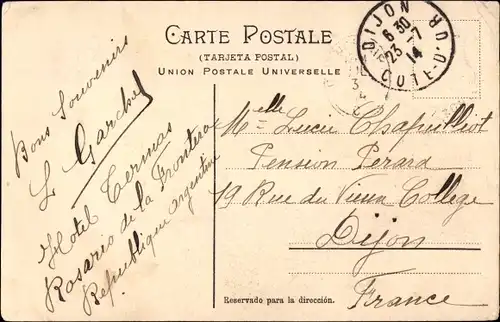 CARTE POSTALE
(TARJETA POSTAL)
UNION POSTALE UNIVERSELLE
DIJON
6 30
23-7
14
COTE-D'OR
Bons Souvenirs
L Garchel
Hotel Termas
Rosario de la Frontera
Republique Argentine
Melle Lucie Chapulliot
Pension Perard
19 Rue du Vieux College
Dijon
France
Reservado para la dirección.